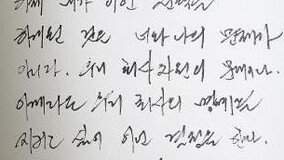 내가 이런 선택을
하게된 것은 너와 나의 문제가
아니다. 우리 회사 차원의 문제이다.
우리 회사의 명예를
지키고 싶어 이런 결정을 한다.